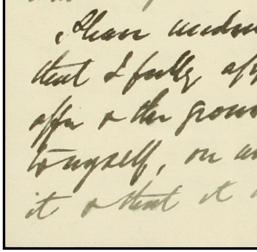 Please unders
that I fully app
offer & the groun
to myself, on a
it & that it